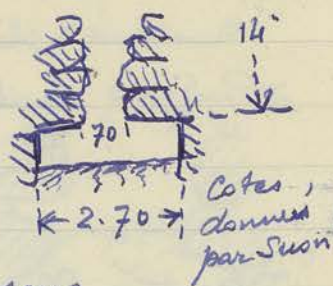 14
70
2.70
Cotes,
données
par Suon